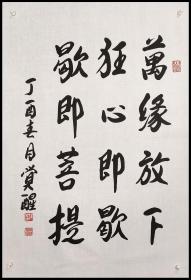 萬緣放下
狂心即歇
歇即菩提
丁酉春月覺醒